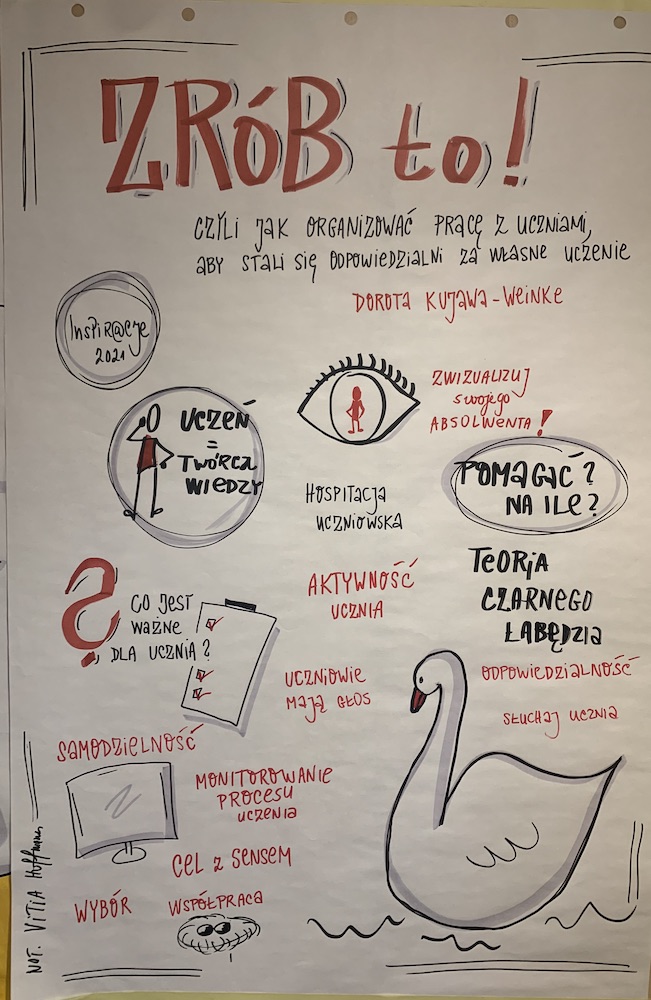 ZRÓB to!
CZYLI JAK ORGANIZOWAĆ PRACĘ Z UCZNIAMI,
ABY STALI SIĘ ODPOWIEDZIALNI ZA WŁASNE UCZENIE
DOROTA KUJAWA-WEINKE
InspiR@cje
2021
UCZEŃ
=
TWÓRCA
WIEDZY
ZWIZUALIZUJ
swojego
ABSOLWENTA!
POMAGAĆ?
NA ILE?
HOSPITACJA
UCZNIOWSKA
TEORIA
CZARNEGO
ŁABĘDZIA
AKTYWNOŚĆ
UCZNIA
?
CO JEST
WAŻNE
DLA UCZNIA?
UCZNIOWIE
MAJĄ GŁOS
ODPOWIEDZIALNOŚĆ
SŁUCHAJ UCZNIA
SAMODZIELNOŚĆ
MONITOROWANIE
PROCESU
UCZENIA
CEL Z SENSEM
WYBÓR
WSPÓŁPRACA
NOT. VITIA Hoffmann